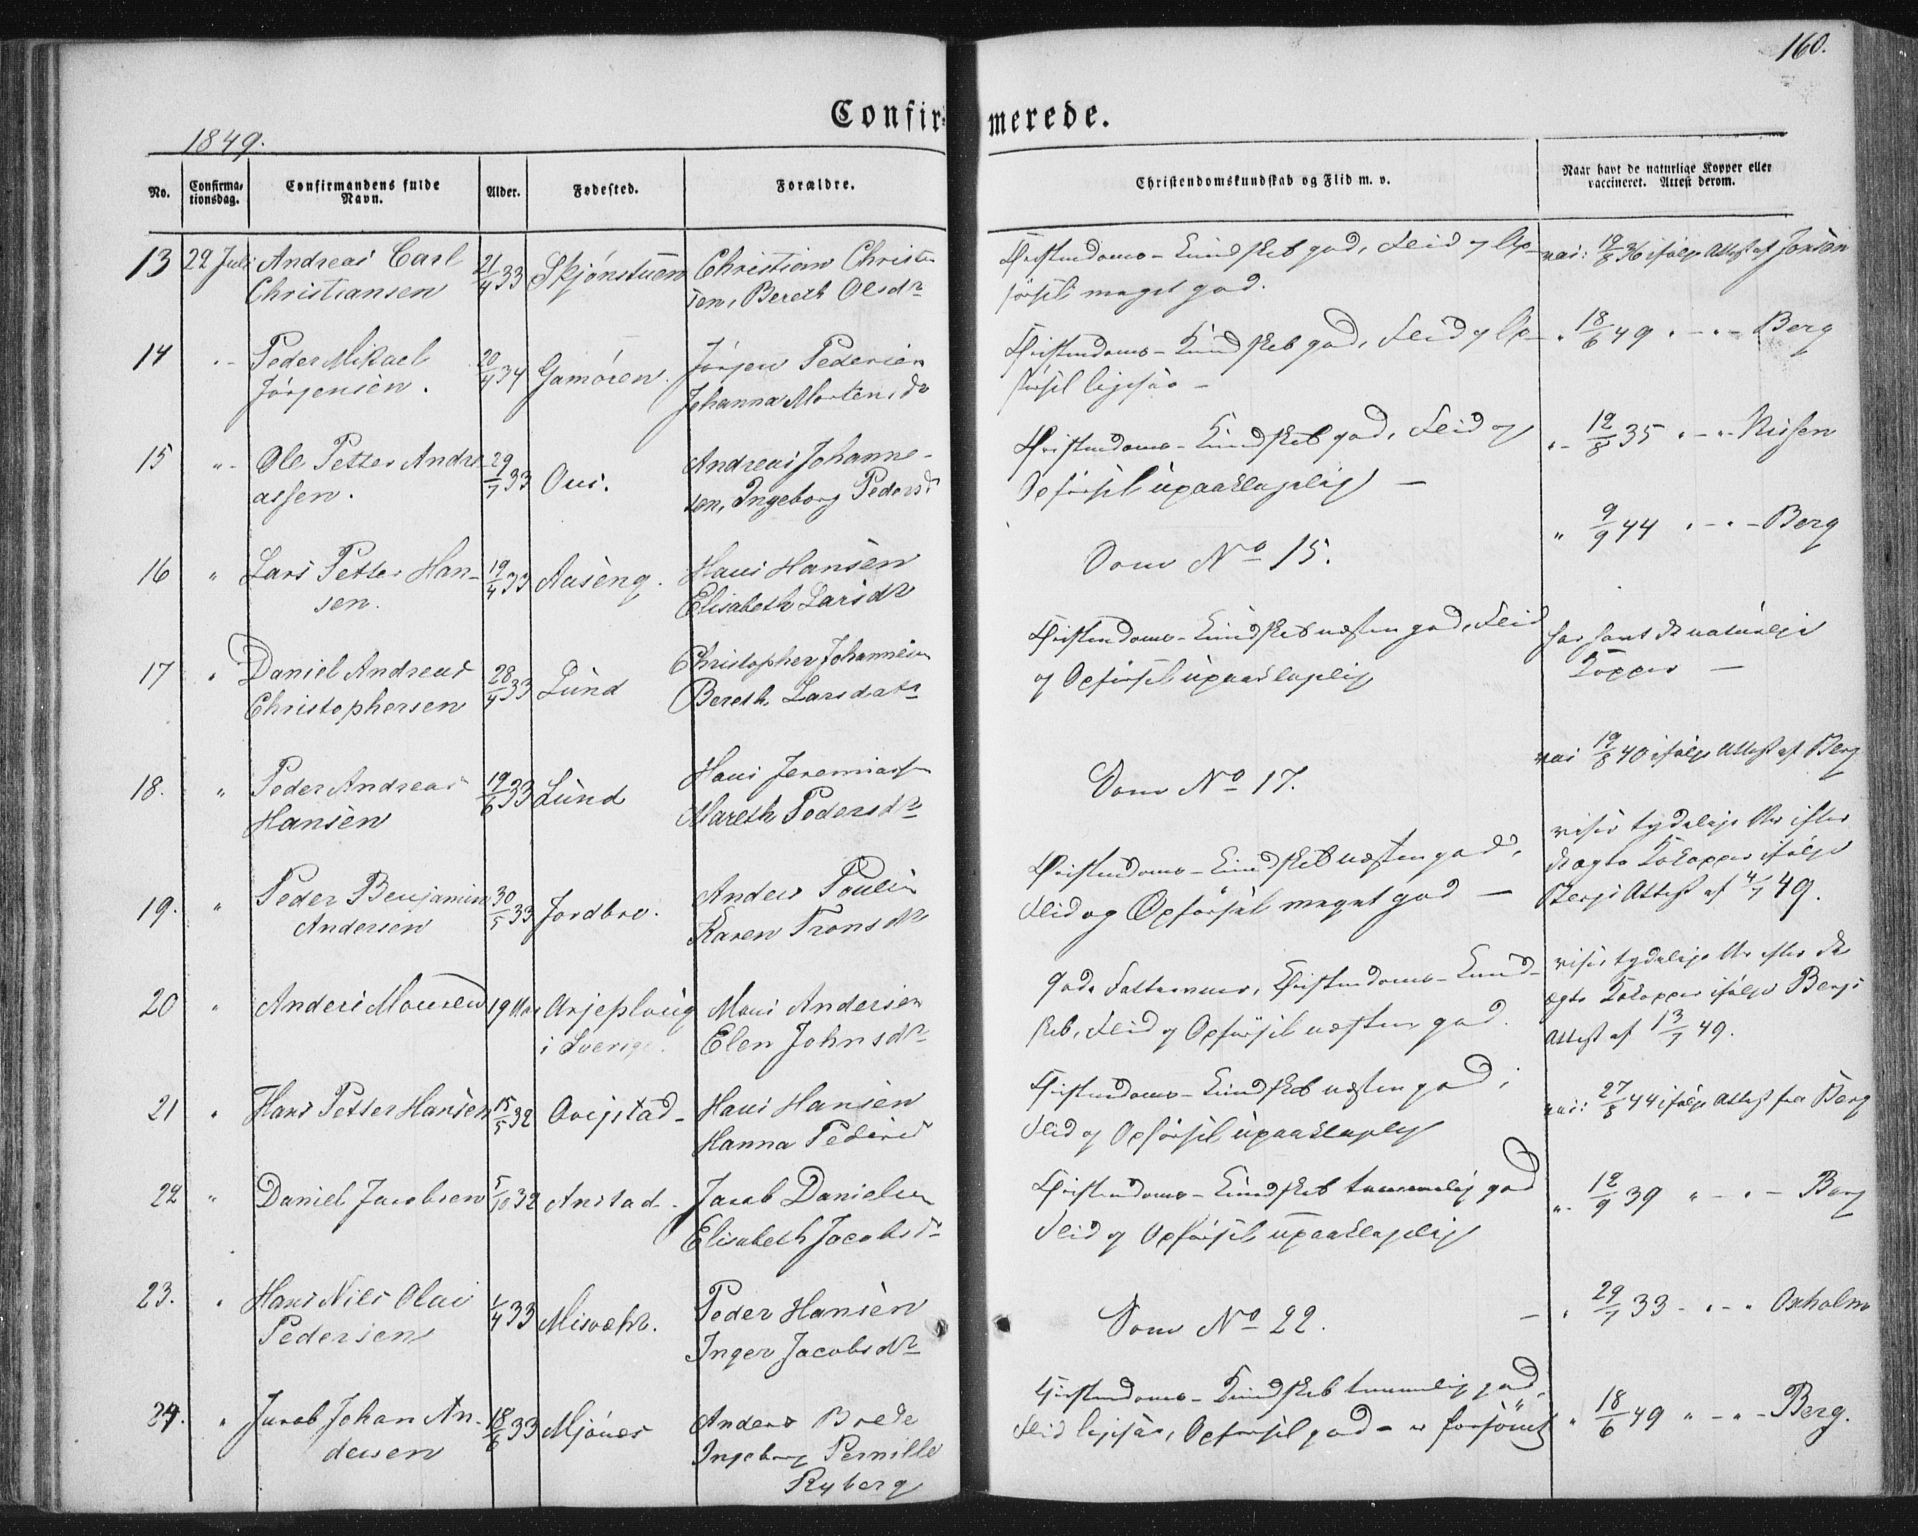 160.
Confirmerede.
1849.
No.
Confirmationsdag.
Confirmandens fulde Navn.
Alder.
Fødested.
Forældre.
Christendomskundskab og Flid m. v.
Naar havt de naturlige Kopper eller vaccineret. Attest derom.
13 22 Juli Andreas Carl 21/4 33 Skjønstuen Christian Christen- Christendoms-Kundskab god, Flid og Op- vac: 19/8 36 ifølge Attest af Jonsen
Christiansen sen, Bereth Olsdr førsel meget god.
14 " Peder Mikael 20/4 34 Gamøren. Jørgen Pedersen Christendoms-Kundskab god, Flid og Op- " 18/6 49 " - " - Berg
Jørgensen. Johanna Mortensdr førsel ligesaa -
15 " Ole Petter Andre- 29/7 33 Ous. Andreas Johanne- Christendoms-Kundskab god, Flid og " 12/8 35 " - " Nissen
assen. sen, Ingeborg Pedersd Opførsel upaaklagelig -
16 " Lars Petter Han- 19/4 33 Aaseng. Hans Hansen Som No 15. " 9/9 44 " - " - Berg
sen. Elisabeth Larsdr
17 " Daniel Andreas 28/4 33 Lund Christopher Johannesen Christendoms-Kundskab næsten god, Flid har havt de naturlige
Christophersen Bereth Larsdatr og Opførsel upaaklagelig Kopper -
18. " Peder Andreas 19/6 33 Lund Hans Jeremiass Som No 17. vac 19/8 40 ifølge Attest af Berg
Hansen Mareth Pedersdr
19. " Peder Benjamin 30/5 33 Jordbro. Anders Poulsen Christendoms-Kundskab næsten god, viser tydelige Ar efter
Andersen Karen Tronsdr Flid og Opførsel meget god - de ægte Kokopper ifølge
Bergs Attest af 4/7 49.
20 " Anders Monsen 19 Aar Arjeploug Mons Andersen Gode Fatteevner, Christendoms-Kund- viser tydelige Ar efter de
i Sverige. Elen Johnsdr skab, Flid og Opførsel næsten god. ægte Kokopper ifølge Bergs
Attest af 13/7 49.
21 " Hans Petter Hansen 15/5 32 Arijstad - Hans Hansen Christendoms-Kundskab næsten god, vac: 27/8 44 ifølge Attest fra Berg
Hanna Pedersd Flid og Opførsel upaaklagelig
22 " Daniel Jacobsen 5/10 32 Anstad. Jacob Danielsen Christendoms-Kundskab temmelig god " 12/9 39 " - " - Berg
Elisabeth Jacobsdr Flid og Opførsel upaaklagelig
23. " Hans Nils Olai 1/4 33 Misvær. Peder Hansen Som No 22. - " 29/7 33 - " - " Oxholm
Pedersen Inger Jacobsdr
24. " Jacob Johan An- 18/6 33 Mjønes Anders Brede Christendoms-Kundskab temmelig god, " 18/6 49 " - " - Berg.
dersen Ingeborg Pernille Flid ligesaa, Opførsel god - er forsømt
Ryberg